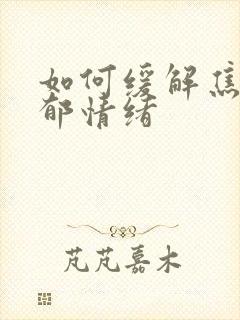 如何缓解焦
郁情绪
芃芃嘉木